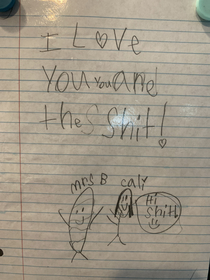 I LOVE
You You and
the S Shit!
mrs B caly
Hi
Shith